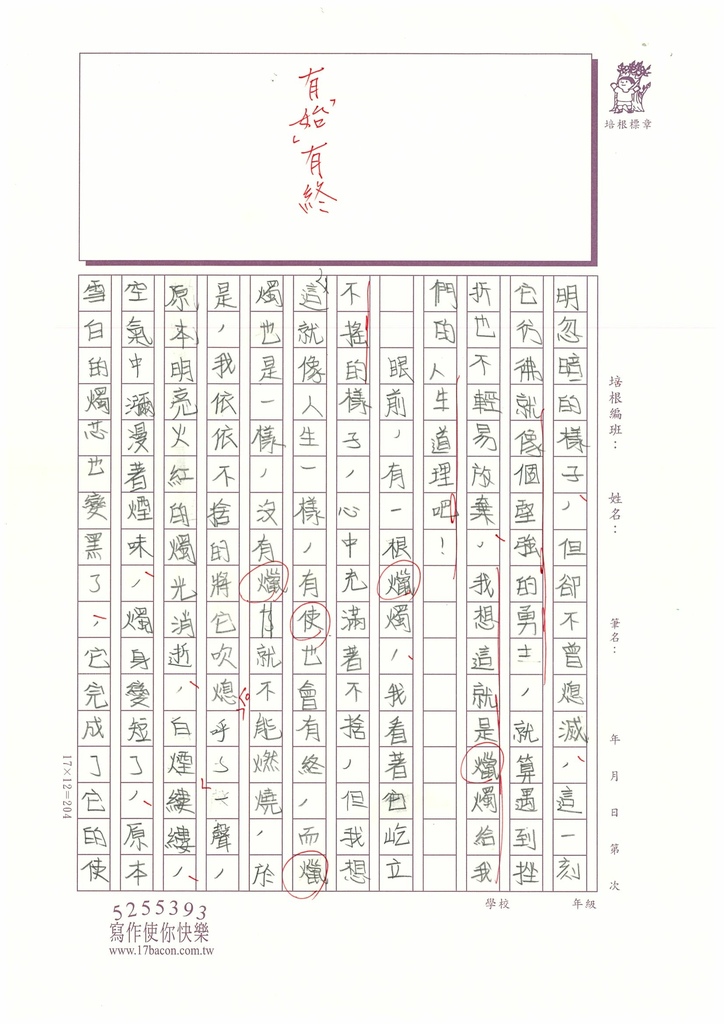 有「始」有終
培根標章
明忽暗的樣子，但卻不曾熄滅，這一刻
它彷彿就像個堅強的勇士，就算遇到挫
折也不輕易放棄，我想這就是蠟燭給我
們的人生道理吧！
眼前，有一根蠟燭，我看著它屹立
不搖的樣子，心中充滿著不捨，但我想
這就像人生一樣，有使也會有終，而蠟
燭也是一樣，沒有蠟就不能燃燒，於
是，我依依不捨的將它吹熄。呼～一聲，
原本明亮火紅的燭光消逝，白煙縷縷，
空氣中瀰漫著煙味，燭身變短了，原本
雪白的燭芯也變黑了，它完成了它的使
培根編班：
姓名：
筆名：
年 月 日 第 次
17×12=204
學校
年級
5255393
寫作使你快樂
www.17bacon.com.tw